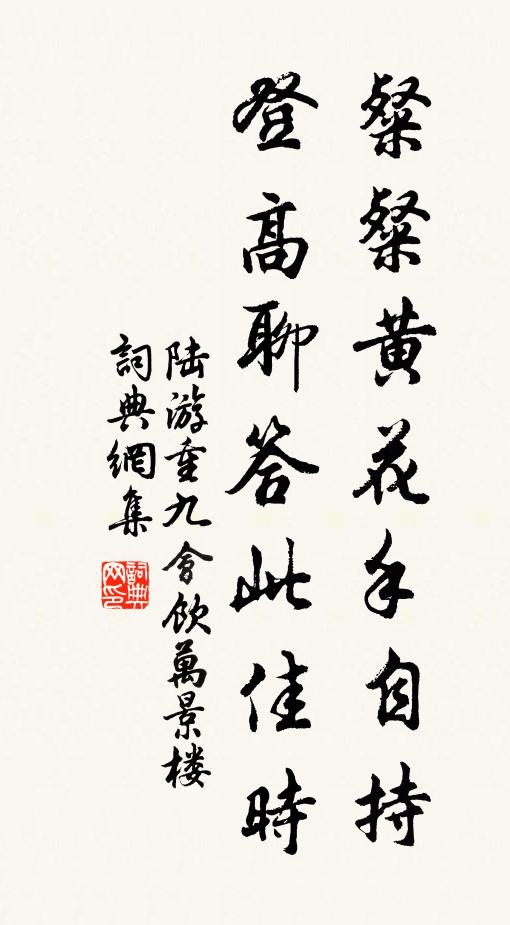 粲粲黄花手自持
登高聊答此佳時
陆游重九会飲萬景楼
詞典網集
詞典网印